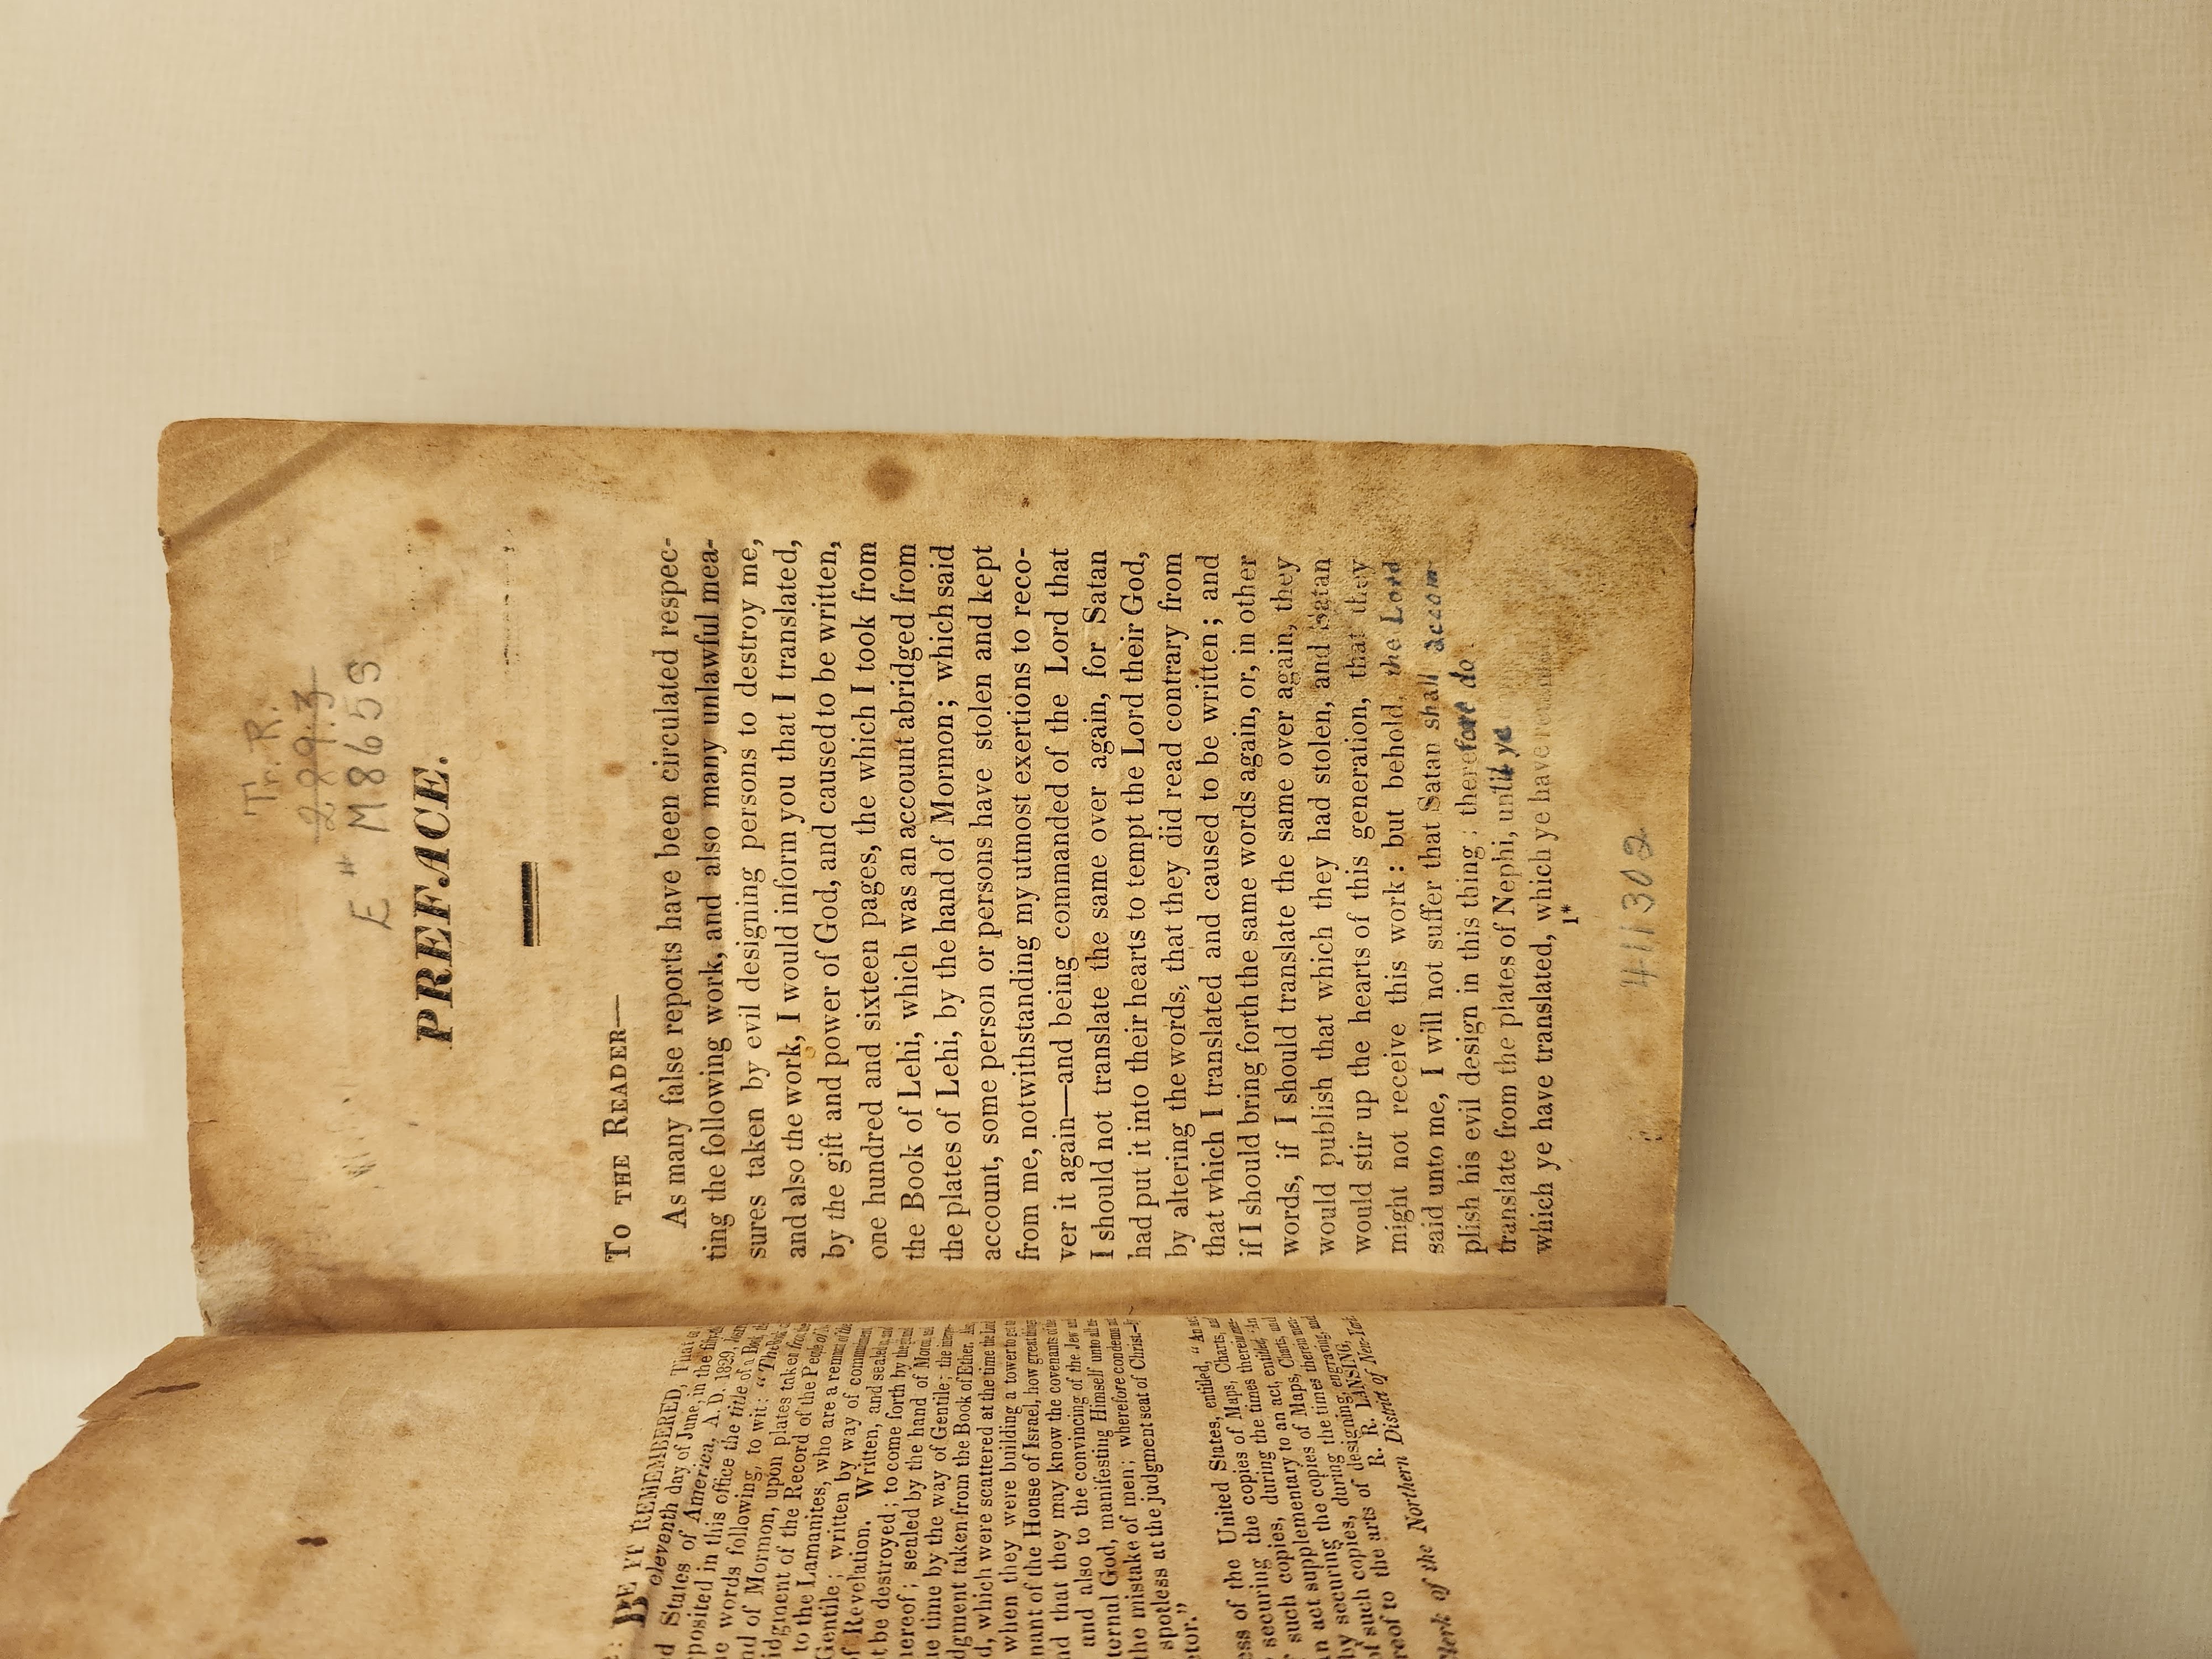 BE IT REMEMBERED, That
eleventh day of June, in the
d States of America, A. D. 1829,
posited in this office the title of a Book
e words following, to wit: "The
nd of Mormon, upon plates taken
idgment of the Record of the People of
to the Lamanites, who are a remnant of the
Gentile; written by way of
of Revelation. Written, and sealed
t be destroyed; to come forth by the
hereof; sealed by the hand of
ue time by the way of Gentile; the
dgment taken from the Book of Ether.
d, which were scattered at the time the Lord
when they were building a tower to get
mant of the House of Israel, how great things
nd that they may know the covenants of the
and also to the convincing of the Jew and
ternal God, manifesting Himself unto all
he mistake of men; wherefore condemn
spotless at the judgment seat of Christ
etor."
ess of the United States, entitled, "An act
securing the copies of Maps, Charts,
such copies, during the times therein
an act, entitled, 'An
n act supplementary to an act, entitled
by securing the copies of Maps, Charts, and
of such copies, during the times therein
reof to the arts of designing, engraving, and
R. R. LANSING,
Clerk of the Northern District of New-York
Tr. R.
289.3
E* M865s
PREFACE.
To THE READER—
As many false reports have been circulated respec-
ting the following work, and also many unlawful mea-
sures taken by evil designing persons to destroy me,
and also the work, I would inform you that I translated,
by the gift and power of God, and caused to be written,
one hundred and sixteen pages, the which I took from
the Book of Lehi, which was an account abridged from
the plates of Lehi, by the hand of Mormon; which said
account, some person or persons have stolen and kept
from me, notwithstanding my utmost exertions to reco-
ver it again—and being commanded of the Lord that
I should not translate the same over again, for Satan
had put it into their hearts to tempt the Lord their God,
by altering the words, that they did read contrary from
that which I translated and caused to be written; and
if I should bring forth the same words again, or, in other
words, if I should translate the same over again, they
would publish that which they had stolen, and Satan
would stir up the hearts of this generation, that they
might not receive this work: but behold, the Lord
said unto me, I will not suffer that Satan shall accom-
plish his evil design in this thing: therefore do
translate from the plates of Nephi, until ye
which ye have translated, which ye have
1*
411302